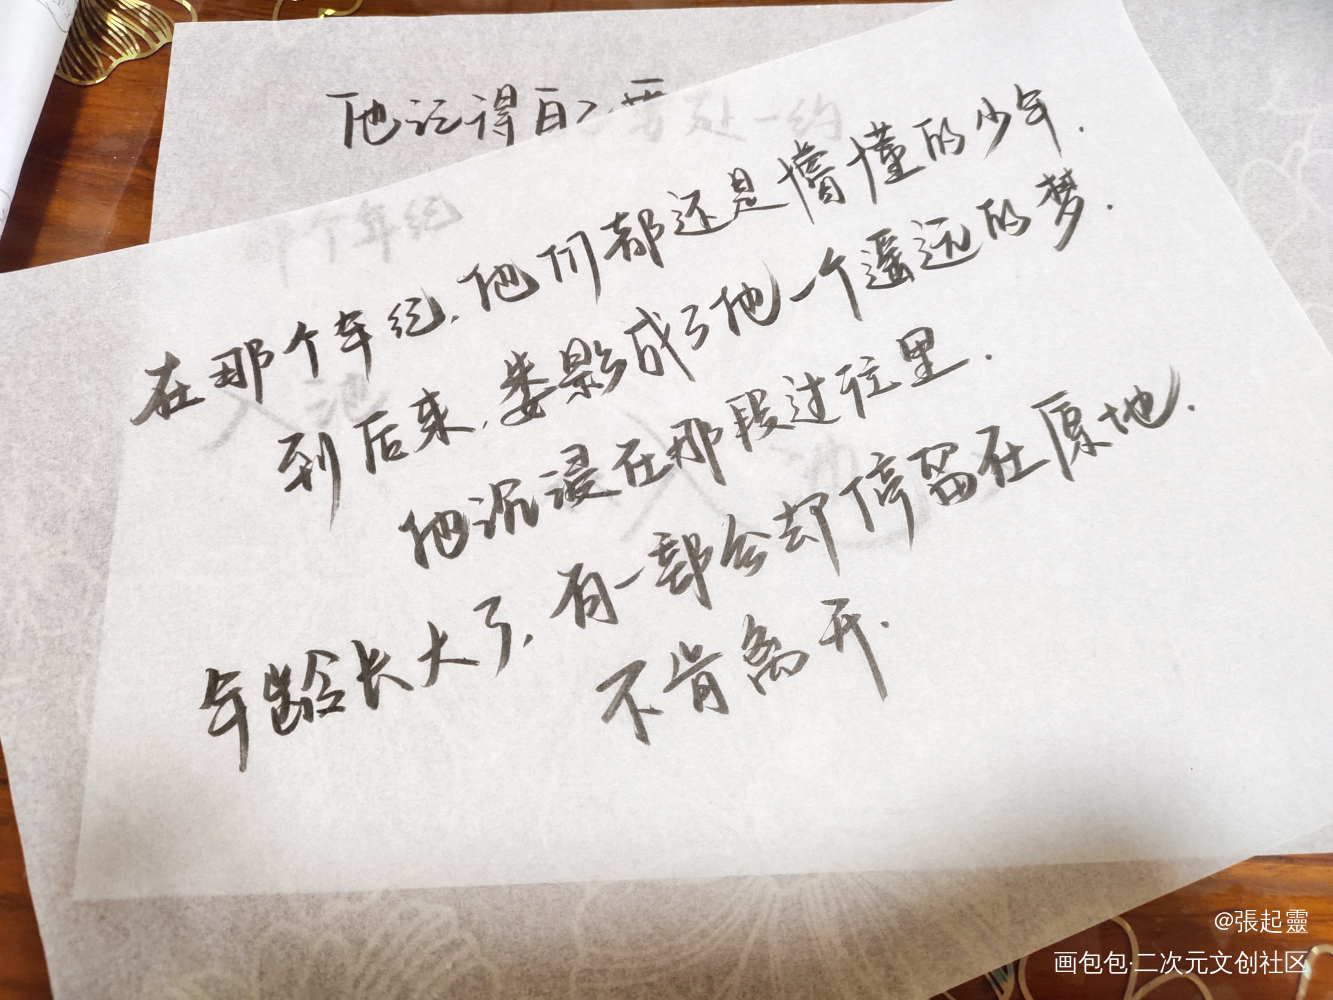 他记得自己要赴一约
在那个年纪,他们都还是懵懂的少年.
到后来,娄影成了他一个遥远的梦.
他沉浸在那段过往里.
年龄长大了,有一部分却停留在原地.
不肯离开.
@張起靈
画包包·二次元文创社区